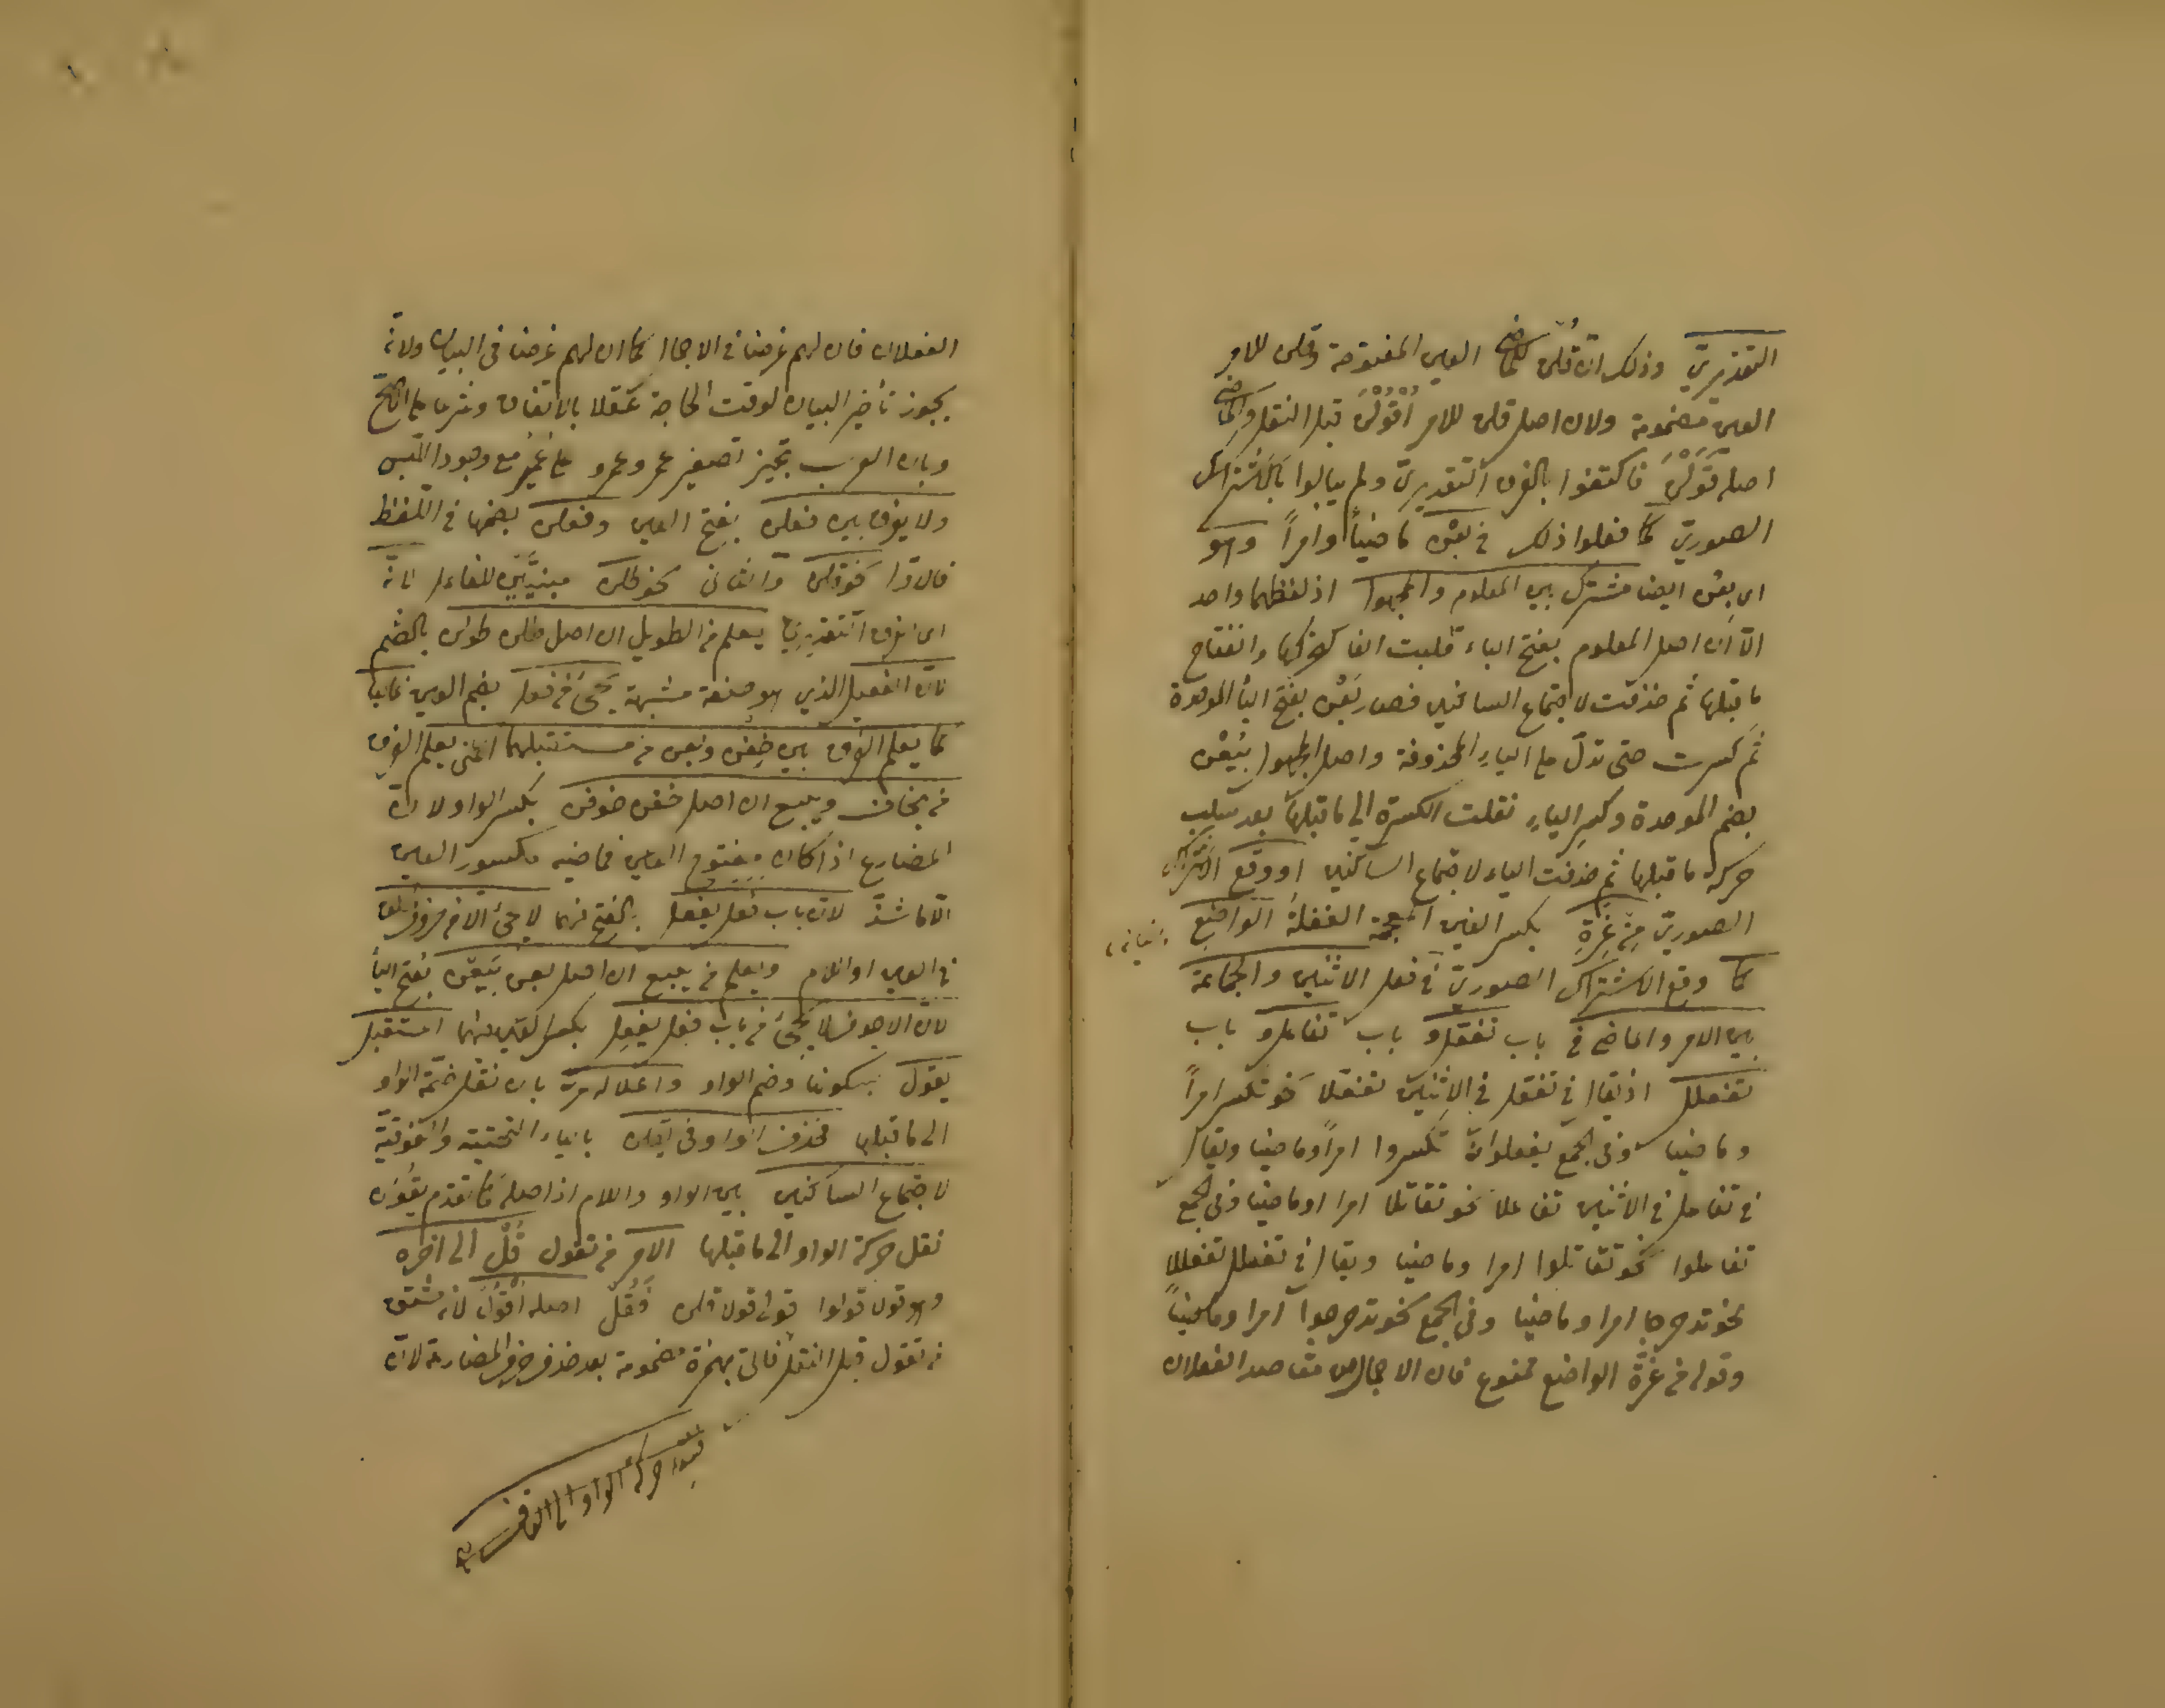 التقديريّ وذلك انّ قلن للماضى العين المفتوحة وقلن للامر
العين مضمومة ولان اصل قلن للامر اُقْوُلْنَ قبل النقل والماضى
اصله قَوَلْنَ فاكتفوا بالفرق التقديريّ ولم يبالوا بالاشتراك
الصوريّ كما فعلوا ذلك فى بعن ماضياً وامراً وهو
اى بعن ايضا مشترك بين المعلوم والمجهول اذ لفظهما واحد
الّا انّ اصل المعلوم بفتح الياء قلبت الفا لتحركها وانفتاح
ما قبلها ثم حذفت لاجتماع الساكنين فصار بَعْن بفتح الباء الموحدة
ثم كسرت حتى تدلّ على الياء المحذوفة واصل المجهول بُيِعْن
بضم الموحدة وكسر الياء نقلت الكسرة الى ما قبلها بعد سلب
حركة ما قبلها ثم حذفت الياء لاجتماع الساكنين او وقع الاشتراك
الصوريّ مِنْ غِرّةِ بكسر الغين المعجمة الغفلة الواضع
كما وقع الاشتراك الصوريّ فى فعل الاثنين والجماعة
بين الامر والماضى فى باب تفعّل و باب تفاعل و باب
تفعلل اذ يقال فى تفعّل فى الاثنين تفعّلا نحو تكسرا امراً
وماضيا وفى الجمع تفعلوا نحو تكسروا امراً وماضيا ويقال
فى تفاعل فى الاثنين تفاعلا نحو تقاتلا امرا وماضيا وفى الجمع
تفاعلوا نحو تقاتلوا امرا وماضيا ويقال فى تفعلل تفعللا
نحو تدحرجا امرا وماضيا وفى الجمع نحو تدحرجوا امرا وماضياً
وقوله من غرّة الواضع ممنوع فان الاجمال من مقاصد العقلاء
العقلاء فان لهم غرضا فى الاجمال كما ان لهم غرضا فى البيان ولانّه
يجوز تأخير البيان لوقت الحاجة عقلا بالاتفاق وشرعا على الاصح
وبان العرب تجيز تصغير عمر وعمرو على عُمَير مع وجود اللبس
ولا يفرق بين فعلن بفتح العين وفعلن بضمها فى اللفظ
فالاوّل نحو قلن والثانى نحو طلن مبنيّين للفاعل لانّه
اى الفرق التقديرىّ يعلم من الطويل ان اصل طلن طولن بالضم
لانّ الفعيل الذي هو صفة مشبهة يجئ من فعل بضم العين غالبا
كما يعلم الفرق بين خِفْن وبعن من مستقبلهما اعنى يعلم الفرق
من يخاف ويبيع ان اصل خفن خوفن بكسر الواو لانّ
المضارع اذا كان مفتوح العين فماضيه مكسور العين
الّا ما شذّ لانّ باب فعل يفعل بالفتح فيهما لا يجئ الا من حروف الحلق
فى العين او اللام ويعلم من يبيع ان اصل بعن بَيَعْن بفتح الياء
لانّ الاجوف لا يجئ من باب فعل يفعِل بكسر العين فيهما المستقبل
يقول بسكونها وضم الواو واعلاله مرّ بان نقل ضمّة الواو
الى ما قبلها فحذف الواو فى يقلن بالياء التحتية والفوقيّة
لاجتماع الساكنين بين الواو واللام اذ اصله كما تقدم يقولن
نقل حركة الواو الى ما قبلها الامر من تقول قُلْ الى آخره
وهو قولا قولوا قولى قولا قلن فقل اصله اُقْوُل لانّه مشتق
من تقول قبل النقل فاتى بهمزة مضمومة بعد حذف حرف المضارعة لانّ
فنقلت حركة الواو الى القاف